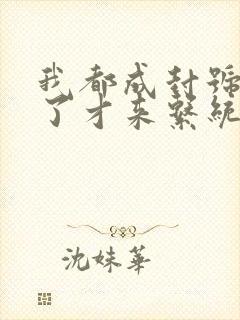 我都成封號
了才來繫統
沈妹華